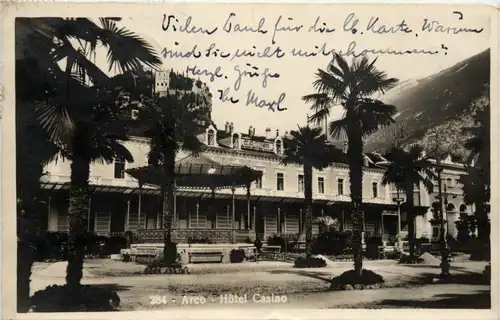 Vielen Dank für die lb. Karte. Warum
sind Sie nicht mitgekommen?
Herzl. Grüße
Ihr Maxl
284 - Arco - Hôtel Casino